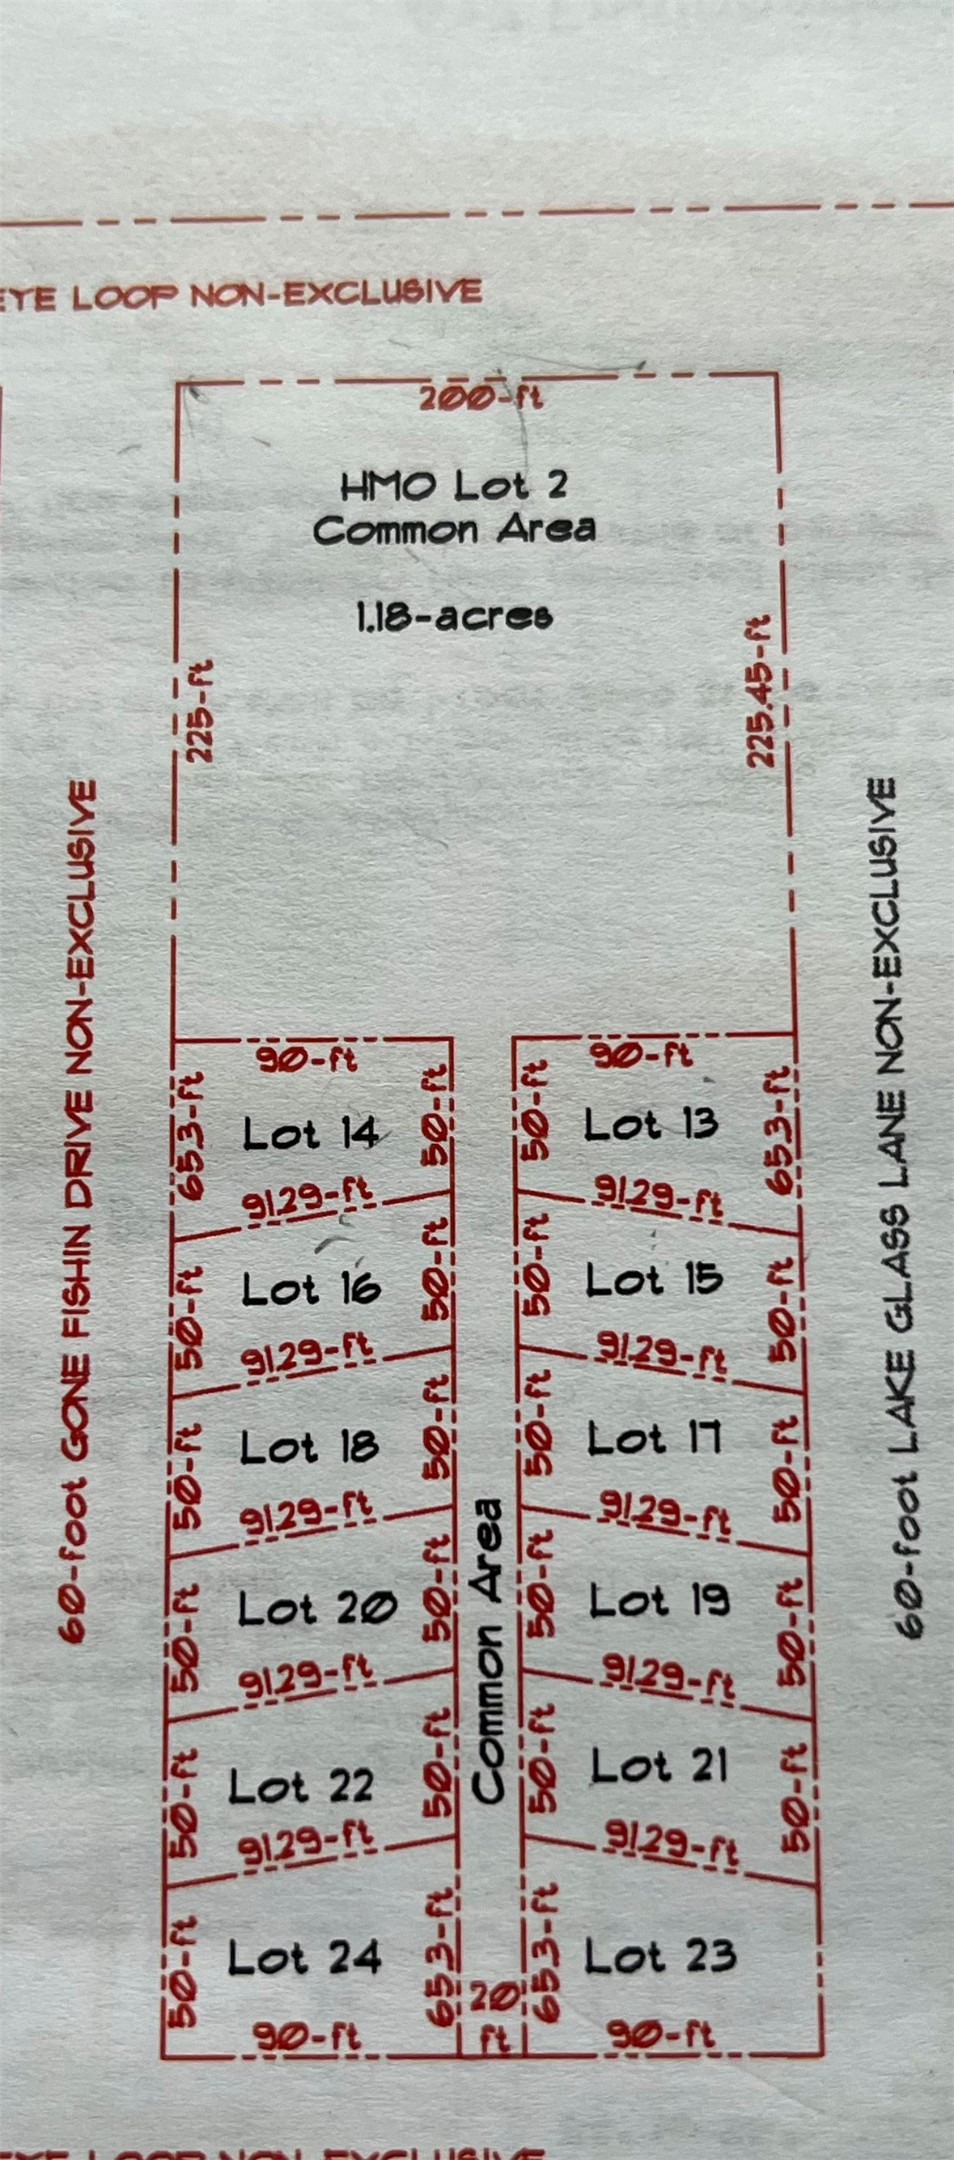 EYE LOOP NON-EXCLUSIVE
200-ft
HMO Lot 2
Common Area
1.18-acres
225-ft
225.45-ft
60-foot GONE FISHIN DRIVE NON-EXCLUSIVE
60-foot LAKE GLASS LANE NON-EXCLUSIVE
90-ft
90-ft
65.3-ft
Lot 14
50-ft
50-ft
Lot 13
65.3-ft
91.29-ft
91.29-ft
50-ft
Lot 16
50-ft
50-ft
Lot 15
50-ft
91.29-ft
91.29-ft
50-ft
Lot 18
50-ft
50-ft
Lot 17
50-ft
91.29-ft
91.29-ft
Common Area
50-ft
Lot 20
50-ft
50-ft
Lot 19
50-ft
91.29-ft
91.29-ft
50-ft
Lot 22
50-ft
50-ft
Lot 21
50-ft
91.29-ft
91.29-ft
50-ft
Lot 24
65.3-ft
65.3-ft
Lot 23
20
ft
90-ft
90-ft
EYE LOOP NON-EXCLUSIVE